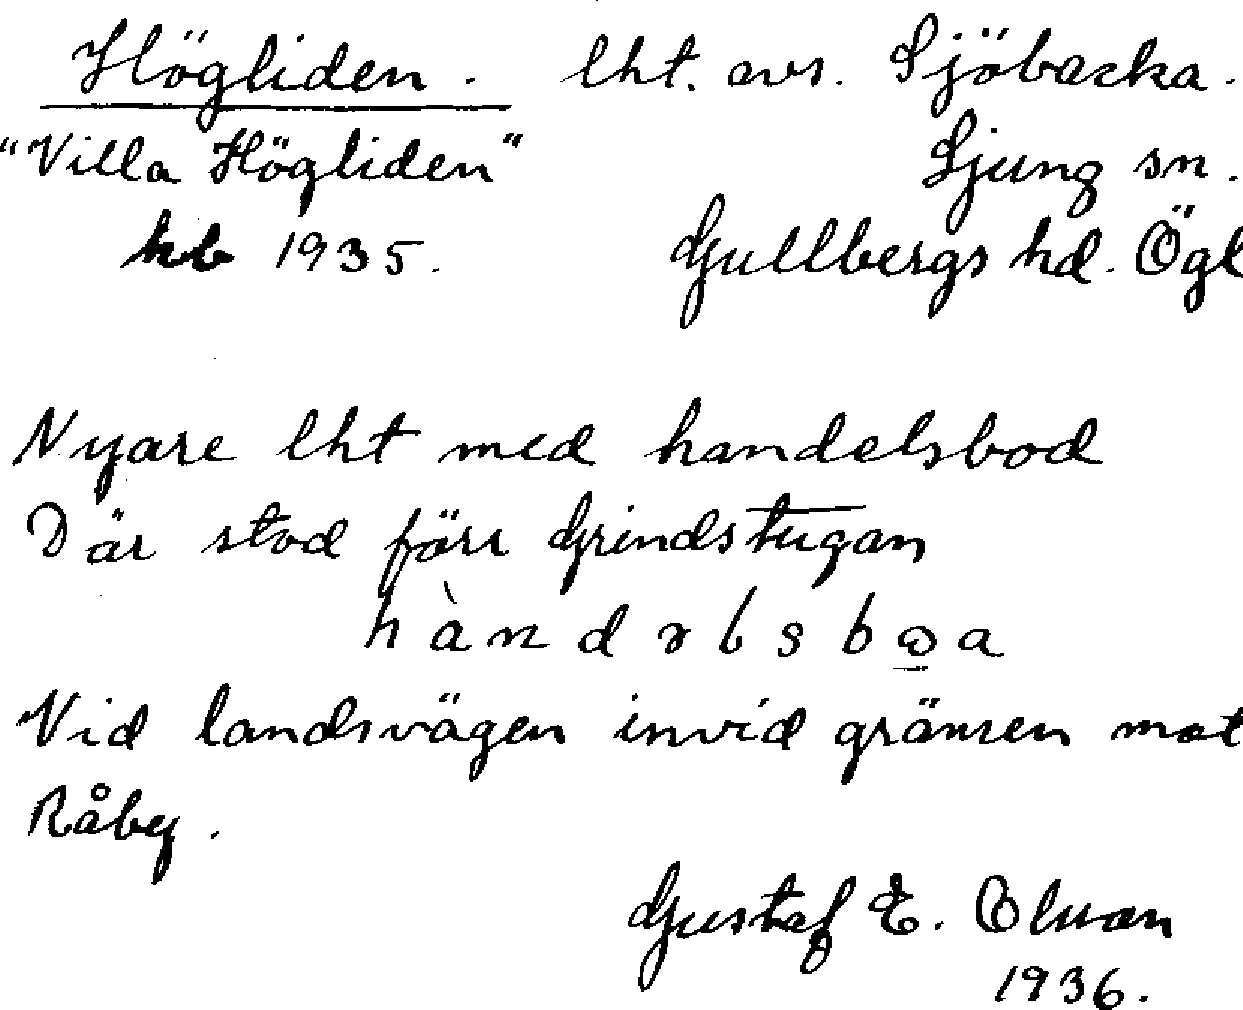 Högliden. lht. avs. Sjöbacka.
"Villa Högliden" Ljung sn.
hb 1935. Gullbergs hd. Ögl
Nyare lht med handelsbod
Där stod förr Grindstugan
hàndɤlsbωa
Vid landsvägen invid gränsen mot
Råby.
Gustaf E. Olson
1936.